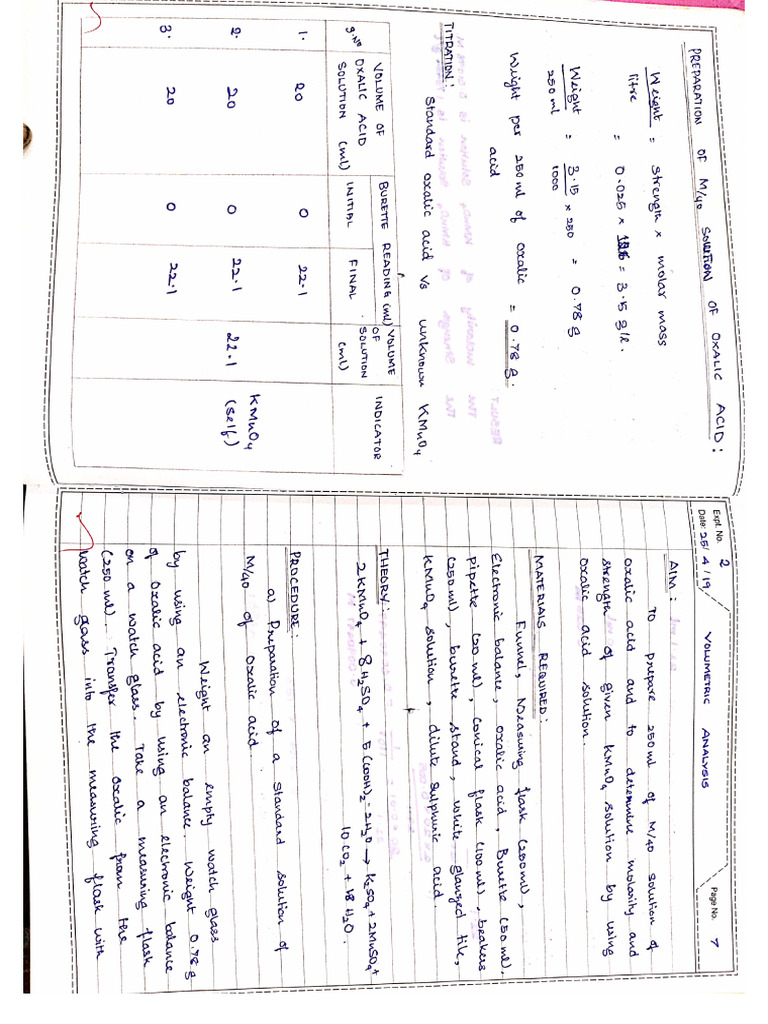 PREPARATION OF M/40 SOLUTION OF OXALIC ACID:
Weight = Strength x molar mass
litre
= 0.025 x 126 = 3.5 g/l.
Weight = 3.15 x 250 = 0.78 g
250 ml 1000
Weight per 250 ml of oxalic = 0.78 g.
acid
TITRATION:
Standard oxalic acid Vs unknown KMnO4
S.No VOLUME OF OXALIC ACID SOLUTION (ml) BURETTE READING (ml) INITIAL FINAL VOLUME OF SOLUTION (ml) INDICATOR
1. 20 0 22.1
2. 20 0 22.1 22.1 KMnO4 (self)
3. 20 0 22.1
Expt. No. 2 VOLUMETRIC ANALYSIS Page No. 7
Date: 25/4/19
AIM:
To prepare 250 ml of M/40 solution of
oxalic acid and to determine molarity and
strength of given KMnO4 solution by using
oxalic acid solution.
MATERIALS REQUIRED:
Funnel, Measuring flask (250ml),
Electronic balance, oxalic acid, Burette (50 ml),
Pipette (20 ml), conical flask (100 ml), beakers
(250 ml), burette stand, white glanzed tile,
KMnO4 solution, dilute sulphuric acid.
THEORY:
2KMnO4 + 8H2SO4 + 5(COOH)2 = 2H2O → K2SO4 + 2MnSO4 +
10CO2 + 18H2O.
PROCEDURE:
a) Preparation of a standard solution of
M/40 of Oxalic acid.
Weight an empty watch glass
by using an electronic balance. Weight 0.78g
of oxalic acid by using an electronic balance
on a watch glass. Take a measuring flask
(250 ml). Transfer the oxalic from the
watch gass into the measuring flask with